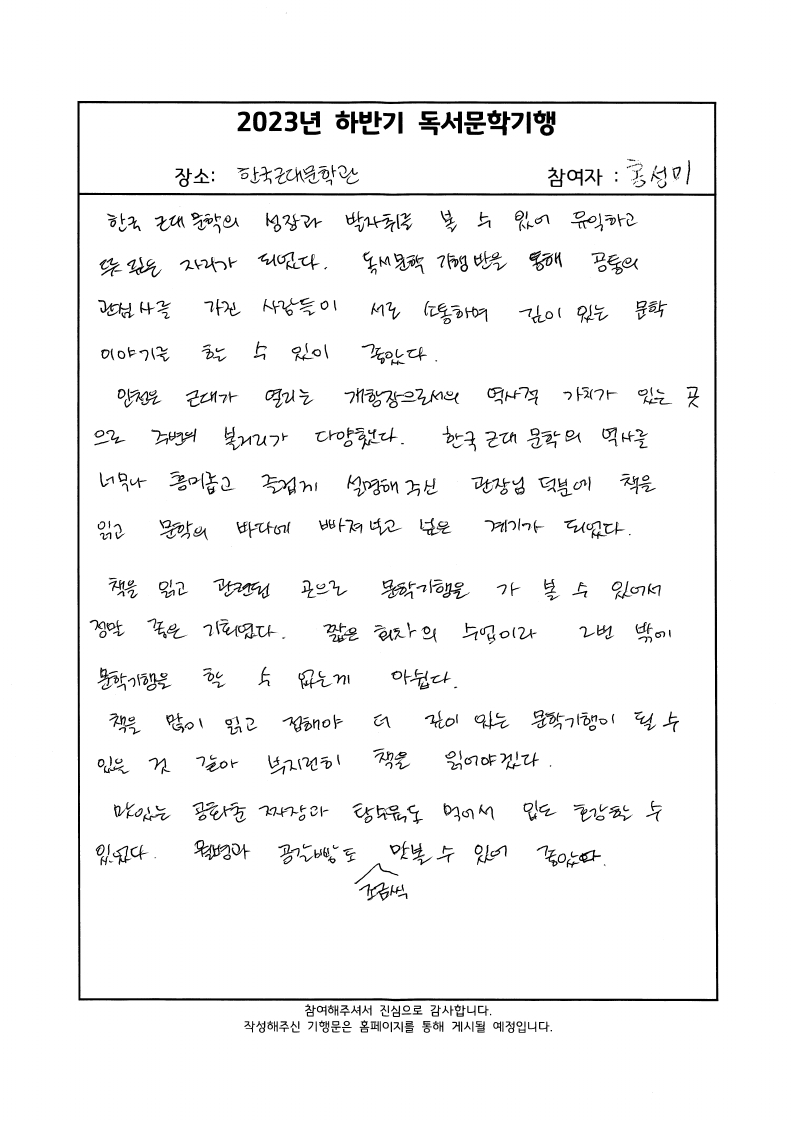 2023년 하반기 독서문학기행
장소: 한국근대문학관 참여자 : 홍성미
한국 근대 문학의 성장과 발자취를 볼 수 있어 유익하고
뜻 깊은 자리가 되었다. 독서문학 기행 반을 통해 공통의
관심사를 가진 사람들이 서로 소통하며 깊이 있는 문학
이야기를 할 수 있어 좋았다.
인천은 근대가 열리는 개항장으로서의 역사적 가치가 있는 곳
으로 주변의 볼거리가 다양했다. 한국 근대 문학의 역사를
너무나 흥미롭고 즐겁게 설명해 주신 관장님 덕분에 책을
읽고 문학의 바다에 빠져보고 싶은 계기가 되었다.
책을 읽고 관련된 곳으로 문학기행을 가 볼 수 있어서
정말 좋은 기회였다. 짧은 회차의 수업이라 2번 밖에
문학기행을 할 수 없는게 아쉽다.
책을 많이 읽고 접해야 더 깊이 있는 문학기행이 될 수
있을 것 같아 부지런히 책을 읽어야겠다.
맛있는 공화춘 짜장과 탕수육도 먹어서 입도 호강할 수
있었다. 월병과 공갈빵도 맛볼 수 있어 좋았다.
조금씩
참여해주셔서 진심으로 감사합니다.
작성해주신 기행문은 홈페이지를 통해 게시될 예정입니다.